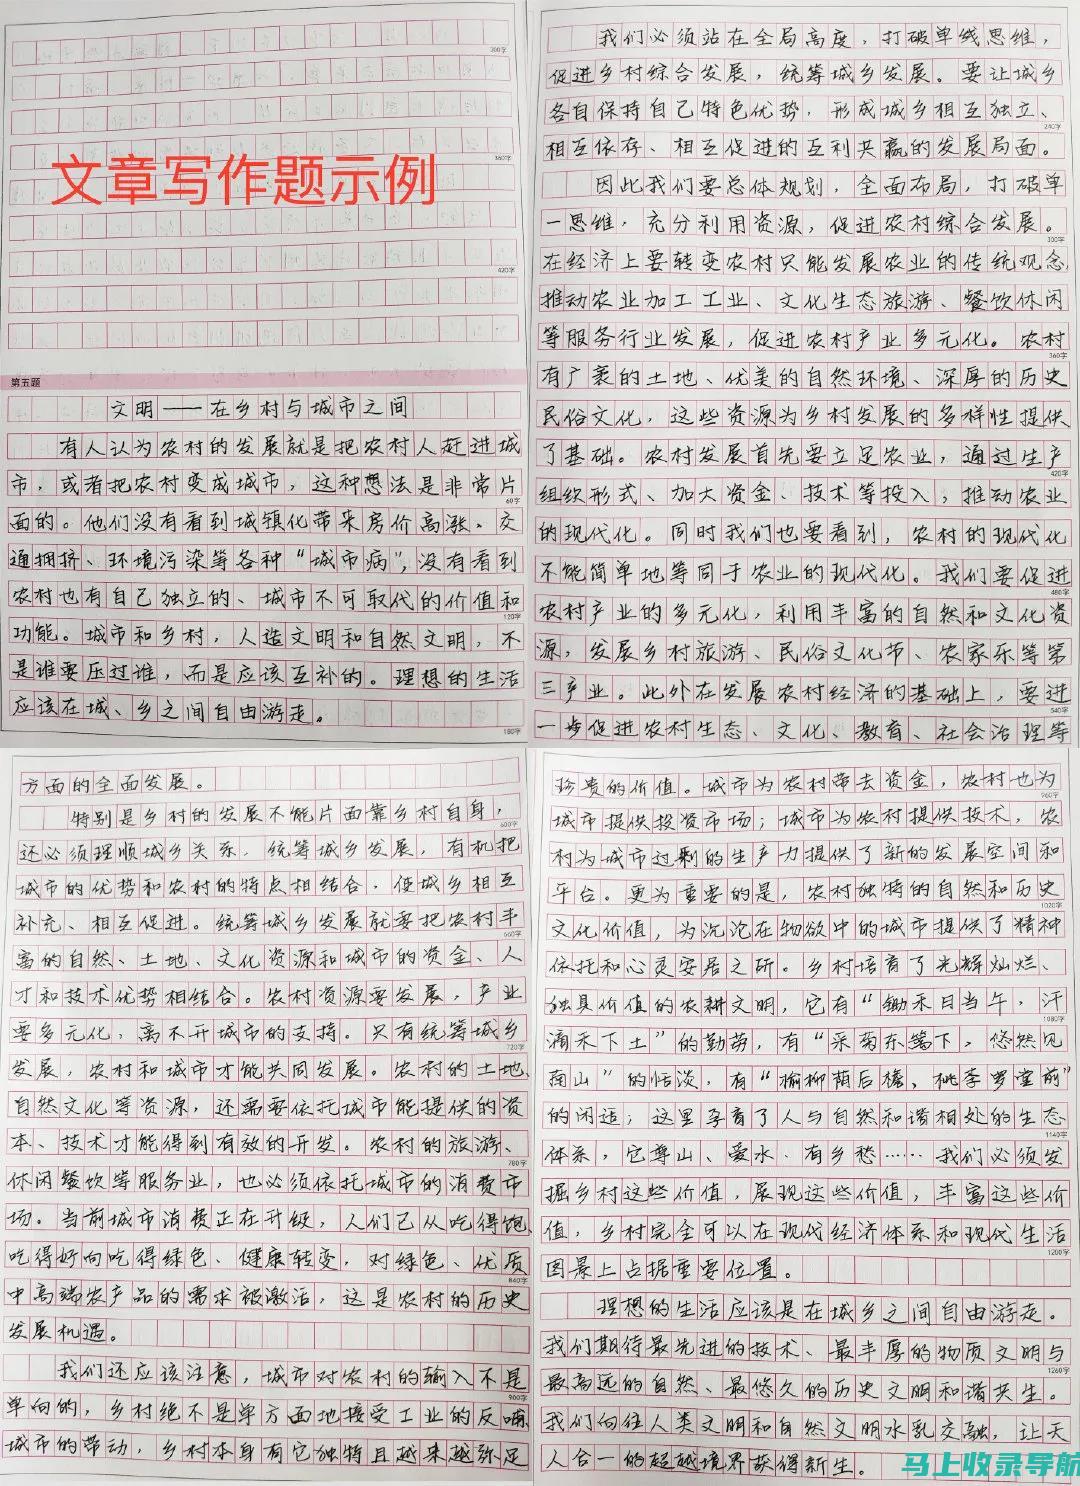 300字
360字
文章写作题示例
420字
第五题
文明——在乡村与城市之间
有人认为农村的发展就是把农村人赶进城
市，或者把农村变成城市，这种想法是非常片
60字
面的。他们没有看到城镇化带来房价高涨、交
通拥挤、环境污染等各种“城市病”，没有看到
农村也有自己独立的、城市不可取代的价值和
120字
功能。城市和乡村，人造文明和自然文明，不
是谁要压过谁，而是应该互补的。理想的生活
应该在城、乡之间自由游走。
180字
我们必须站在全局高度，打破单线思维，
促进乡村综合发展，统筹城乡发展。要让城乡
各自保持自己特色优势，形成城乡相互独立、
240字
相互依存、相互促进的互利共赢的发展局面。
因此我们要总体规划，全面布局，打破单
一思维，充分利用资源，促进农村综合发展。
300字
在经济上要转变农村只能发展农业的传统观念，
推动农业加工工业、文化生态旅游、餐饮休闲
等服务行业发展，促进农村产业多元化。农村
360字
有广袤的土地、优美的自然环境、深厚的历史
民俗文化，这些资源为乡村发展的多样性提供
了基础。农村发展首先要立足农业，通过生产
420字
组织形式、加大资金、技术等投入，推动农业
的现代化。同时我们也要看到，农村的现代化
不能简单地等同于农业的现代化。我们要促进
480字
农村产业的多元化，利用丰富的自然和文化资
源，发展乡村旅游、民俗文化节、农家乐等第
三产业。此外在发展农村经济的基础上，要进
540字
一步促进农村生态、文化、教育、社会治理等
方面的全面发展。
特别是乡村的发展不能片面靠乡村自身，
600字
还必须理顺城乡关系，统筹城乡发展，有机把
城市的优势和农村的特点相结合，使城乡相互
补充、相互促进。统筹城乡发展就要把农村丰
660字
富的自然、土地、文化资源和城市的资金、人
才和技术优势相结合。农村资源要发展，产业
要多元化，离不开城市的支持。只有统筹城乡
720字
发展，农村和城市才能共同发展。农村的土地、
自然文化等资源，还需要依托城市能提供的资
本、技术才能得到有效的开发。农村的旅游、
780字
休闲餐饮等服务业，也必须依托城市的消费市
场。当前城市消费正在升级，人们已从吃得饱、
吃得好向吃得绿色、健康转变，对绿色、优质
840字
中高端农产品的需求被激活，这是农村的历史
发展机遇。
我们还应该注意，城市对农村的输入不是
900字
单向的，乡村绝不是单方面地接受工业的反哺
城市的带动，乡村本身有它独特且越来越弥足
珍贵的价值。城市为农村带去资金，农村也为
960字
城市提供投资市场；城市为农村提供技术，农
村为城市过剩的生产力提供了新的发展空间和
平台。更为重要的是，农村独特的自然和历史
1020字
文化价值，为沉沦在物欲中的城市提供了精神
依托和心灵安居之所。乡村培育了光辉灿烂、
独具价值的农耕文明，它有“锄禾日当午，汗
1080字
滴禾下土”的勤劳，有“采菊东篱下，悠然见
南山”的恬淡，有“榆柳荫后檐，桃李罗堂前”
的闲适；这里孕育了人与自然和谐相处的生态
1140字
体系，它尊山、爱水、有乡愁……我们必须发
掘乡村这些价值，展现这些价值，丰富这些价
值，乡村完全可以在现代经济体系和现代生活
1200字
图景上占据重要位置。
理想的生活应该是在城乡之间自由游走。
我们期待最先进的技术、最丰厚的物质文明与
1260字
最高远的自然、最悠久的历史文明和谐共生。
我们向往人类文明和自然文明水乳交融，让天
人合一的超越境界获得新生。
马上收录导航